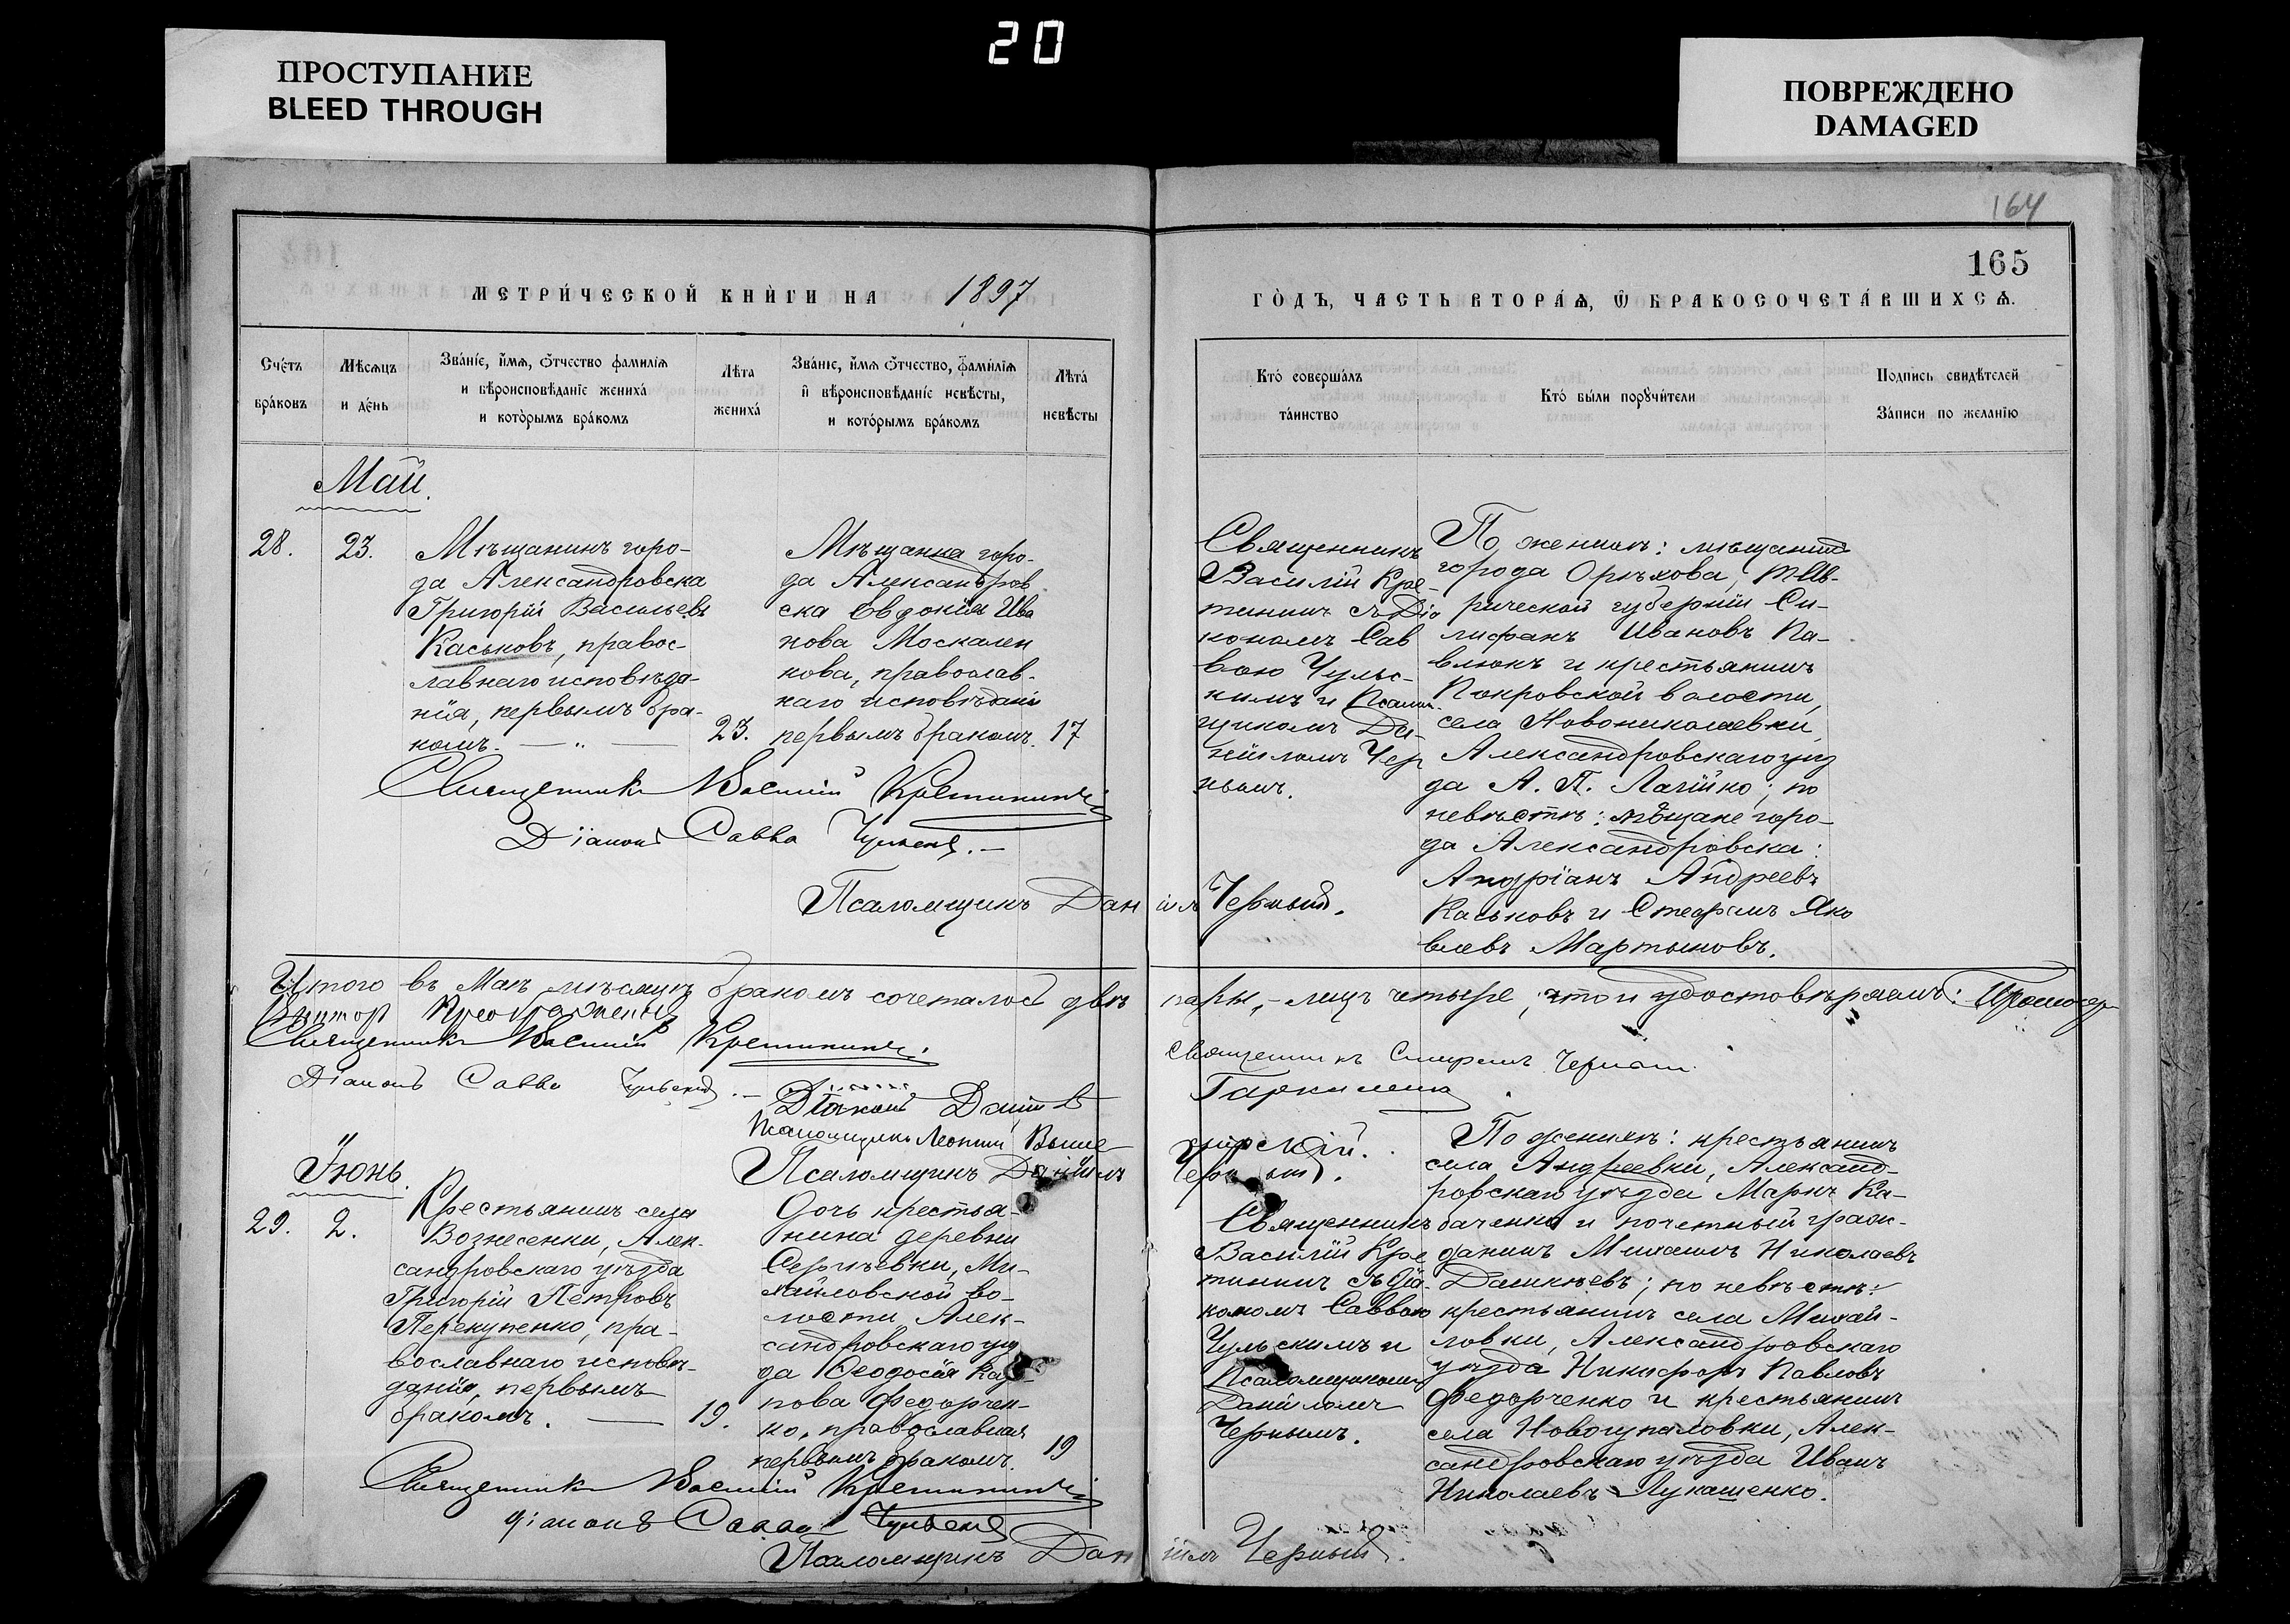 20
ПРОСТУПАНИЕ
BLEED THROUGH
ПОВРЕЖДЕНО
DAMAGED
164
165
МЕТРИ́ЧЕСКОЙ КНИ́ГИ НА 1897
ГО́ДЪ, ЧАСТЬ ВТОРА́Ѧ, Ѿ БРАКОСОЧЕТА́ВШИХСѦ.
Сче́тъ
бра́ковъ
Мѣ́сѧцъ
и де́нь
Зва́нїе, и҆́мѧ, ѻ҆́тчество фамилїѧ
и вѣроисповѣданїе жениха́
и кото́рымъ бра́комъ
Лѣ́та
жениха́
Зва́нїе, и҆́мѧ ѻ҆́тчество, фами́лїѧ
и҆ вѣроисповѣ́данїе невѣ́сты,
и кото́рымъ бра́комъ
Лѣта́
невѣ́сты
Кто́ соверша́лъ
та́инство
Кто́ бы́ли порꙋчи́тели
По́дпись свидѣ́телей
За́писи по жела́нїю
Май.
28. 23.
Мѣщанинъ горо-
да Александровска
Григорій Васильевъ
Каськовъ, правос-
лавнаго исповѣда-
нія, первымъ бра-
комъ. — „ —
23.
Мѣщанка горо-
да Александров
ска Евдокія Ива
нова Москален
кова, православ-
наго исповѣданія
первымъ бракомъ.
17
Священникъ
Василій Кре-
тининъ съ Діа
кономъ Сав
вою Чульс-
кимъ и Псалом
щикомъ Да-
ніиломъ Чер
нымъ.
По женихѣ: мѣщанинъ
города Орѣхова, Тав-
рической губерніи Си-
лифанъ Ивановъ Па-
влюкъ и крестьянинъ
Покровской волости,
села Новониколаевки,
Александровскаго уѣз
да А. П. Лагійко; по
невѣстѣ: мѣщане горо-
да Александровска:
Андріанъ Андреевъ
Каськовъ и Стефанъ Яко
влевъ Мартыновъ.
Священникъ Василій Кретининъ
Діаконъ Савва Чульскій. —
Псаломщикъ Даніилъ Черный.
Итого въ Маѣ мѣсяцѣ бракомъ сочеталось двѣ пары, – лицъ четыре, что и удостовѣряемъ:
Священникъ Василій Кретининъ.
священникъ
Діаконъ Савва Чульскій. —
Діаконъ
Псаломщикъ
Псаломщикъ Даніилъ Черный.
Іюнь.
29. 2.
Крестьянинъ села
Вознесенки, Алек-
сандровскаго уѣзда
Григорій Петровъ
Перекупенко, пра-
вославнаго исповѣ-
данія, первымъ
бракомъ. —
19.
Дочь крестья-
нина деревни
Сергѣевки, Ми-
хайловской во-
лости Алек-
сандровскаго уѣз
да Ѳеодосія
пова Федорчен-
ко, православная
первымъ бракомъ.
19
Священникъ
Василій Кре
тининъ съ Діа-
кономъ Саввою
Чульскимъ и
Псаломщикомъ
Даніиломъ
Чернымъ.
По женихѣ: крестьянинъ
села Андреевки, Александ-
ровскаго уѣзда Маркъ Ка-
баченко и почетный граж-
данинъ Михаилъ Николаевъ
Дашкѣевъ; по невѣстѣ:
крестьянинъ села Михай-
ловки, Александровскаго
уѣзда Никифоръ Павловъ
Федорченко и крестьянинъ
села Новогупаловки, Алек-
сандровскаго уѣзда Иванъ
Николаевъ Лукашенко.
Священникъ Василій Кретининъ
діаконъ Савва Чульскій
Псаломщикъ Даніилъ Черный.